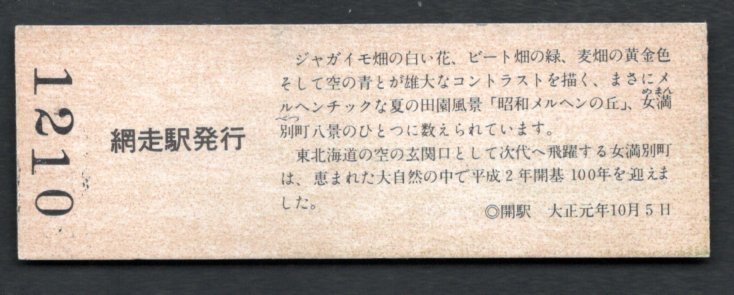 1210
網走駅発行
ジャガイモ畑の白い花、ビート畑の緑、麦畑の黄金色
そして空の青とが雄大なコントラストを描く、まさにメ
ルヘンチックな夏の田園風景「昭和メルヘンの丘」、女満
めまん
別町八景のひとつに数えられています。
べつ
東北海道の空の玄関口として次代へ飛躍する女満別町
は、恵まれた大自然の中で平成2年開基100年を迎えま
した。
◎開駅 大正元年10月5日